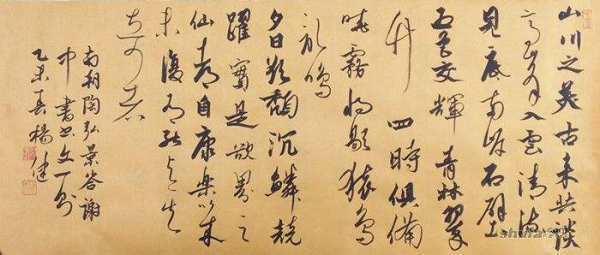 山川之美古来共谈
高峰入云清流
見底兩岸石壁
五色交輝青林翠
竹 四時俱備
曉霧将歇猿鸟
乱鳴
夕日欲頹沉鱗競
躍實是欲界之
仙都自康樂以来
未復有能与其
奇者
南朝陶弘景答謝
中書書文一則
乙未春楊健